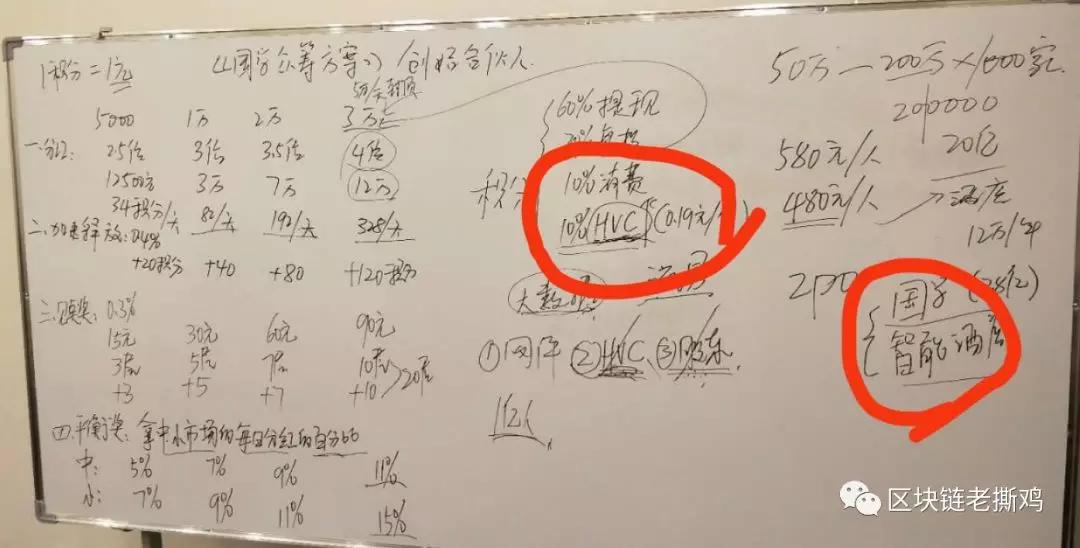 1积分=1元 《国学众筹方案》/创始合伙人
5000 1万 2万 3万
一、分红: 2.5倍 3倍 3.5倍 4倍
12500元 3万 7万 12万
34积分/天 82/天 192/天 328/天
二、加速释放: 0.4%
+20积分 +40 +80 +120积分
三、见奖: 0.3%
15元 30元 60元 90元
3层 5层 7层 10层 20层
+3 +5 +7 +10
四、平衡奖: 拿中小市场的每日分红的百分比
中: 5% 7% 9% 11%
小: 7% 9% 11% 15%
60%提现
积分 10%消费
10% HVC (0.19元/
大数据
① ② HVC ③ 股东
1亿人
50万—200万×1000家
200000
20亿
580元/人
480元/人 → 酒店
12万/年
国学
智能酒店
区块链老撕鸡